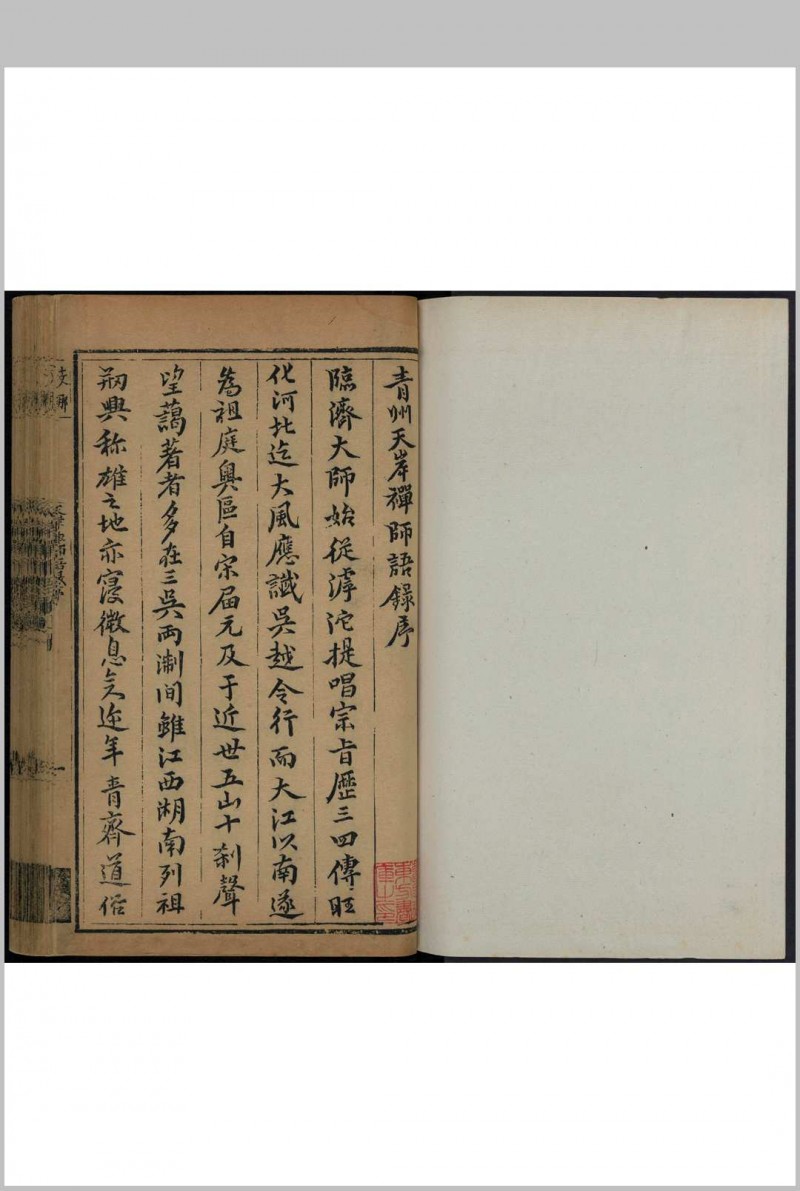 青州天岸禪師語錄序
臨濟大師始從滹沱提唱宗旨歷三四傳旺
化河北迄大風應讖吳越令行而大江以南遂
為祖庭奧區自宋屆元及于近世五山十剎聲
望藹著者多在三吳兩淛間雖江西湖南列祖
刱興称雄之地亦寖微息矣迩年青齊道俗
支那